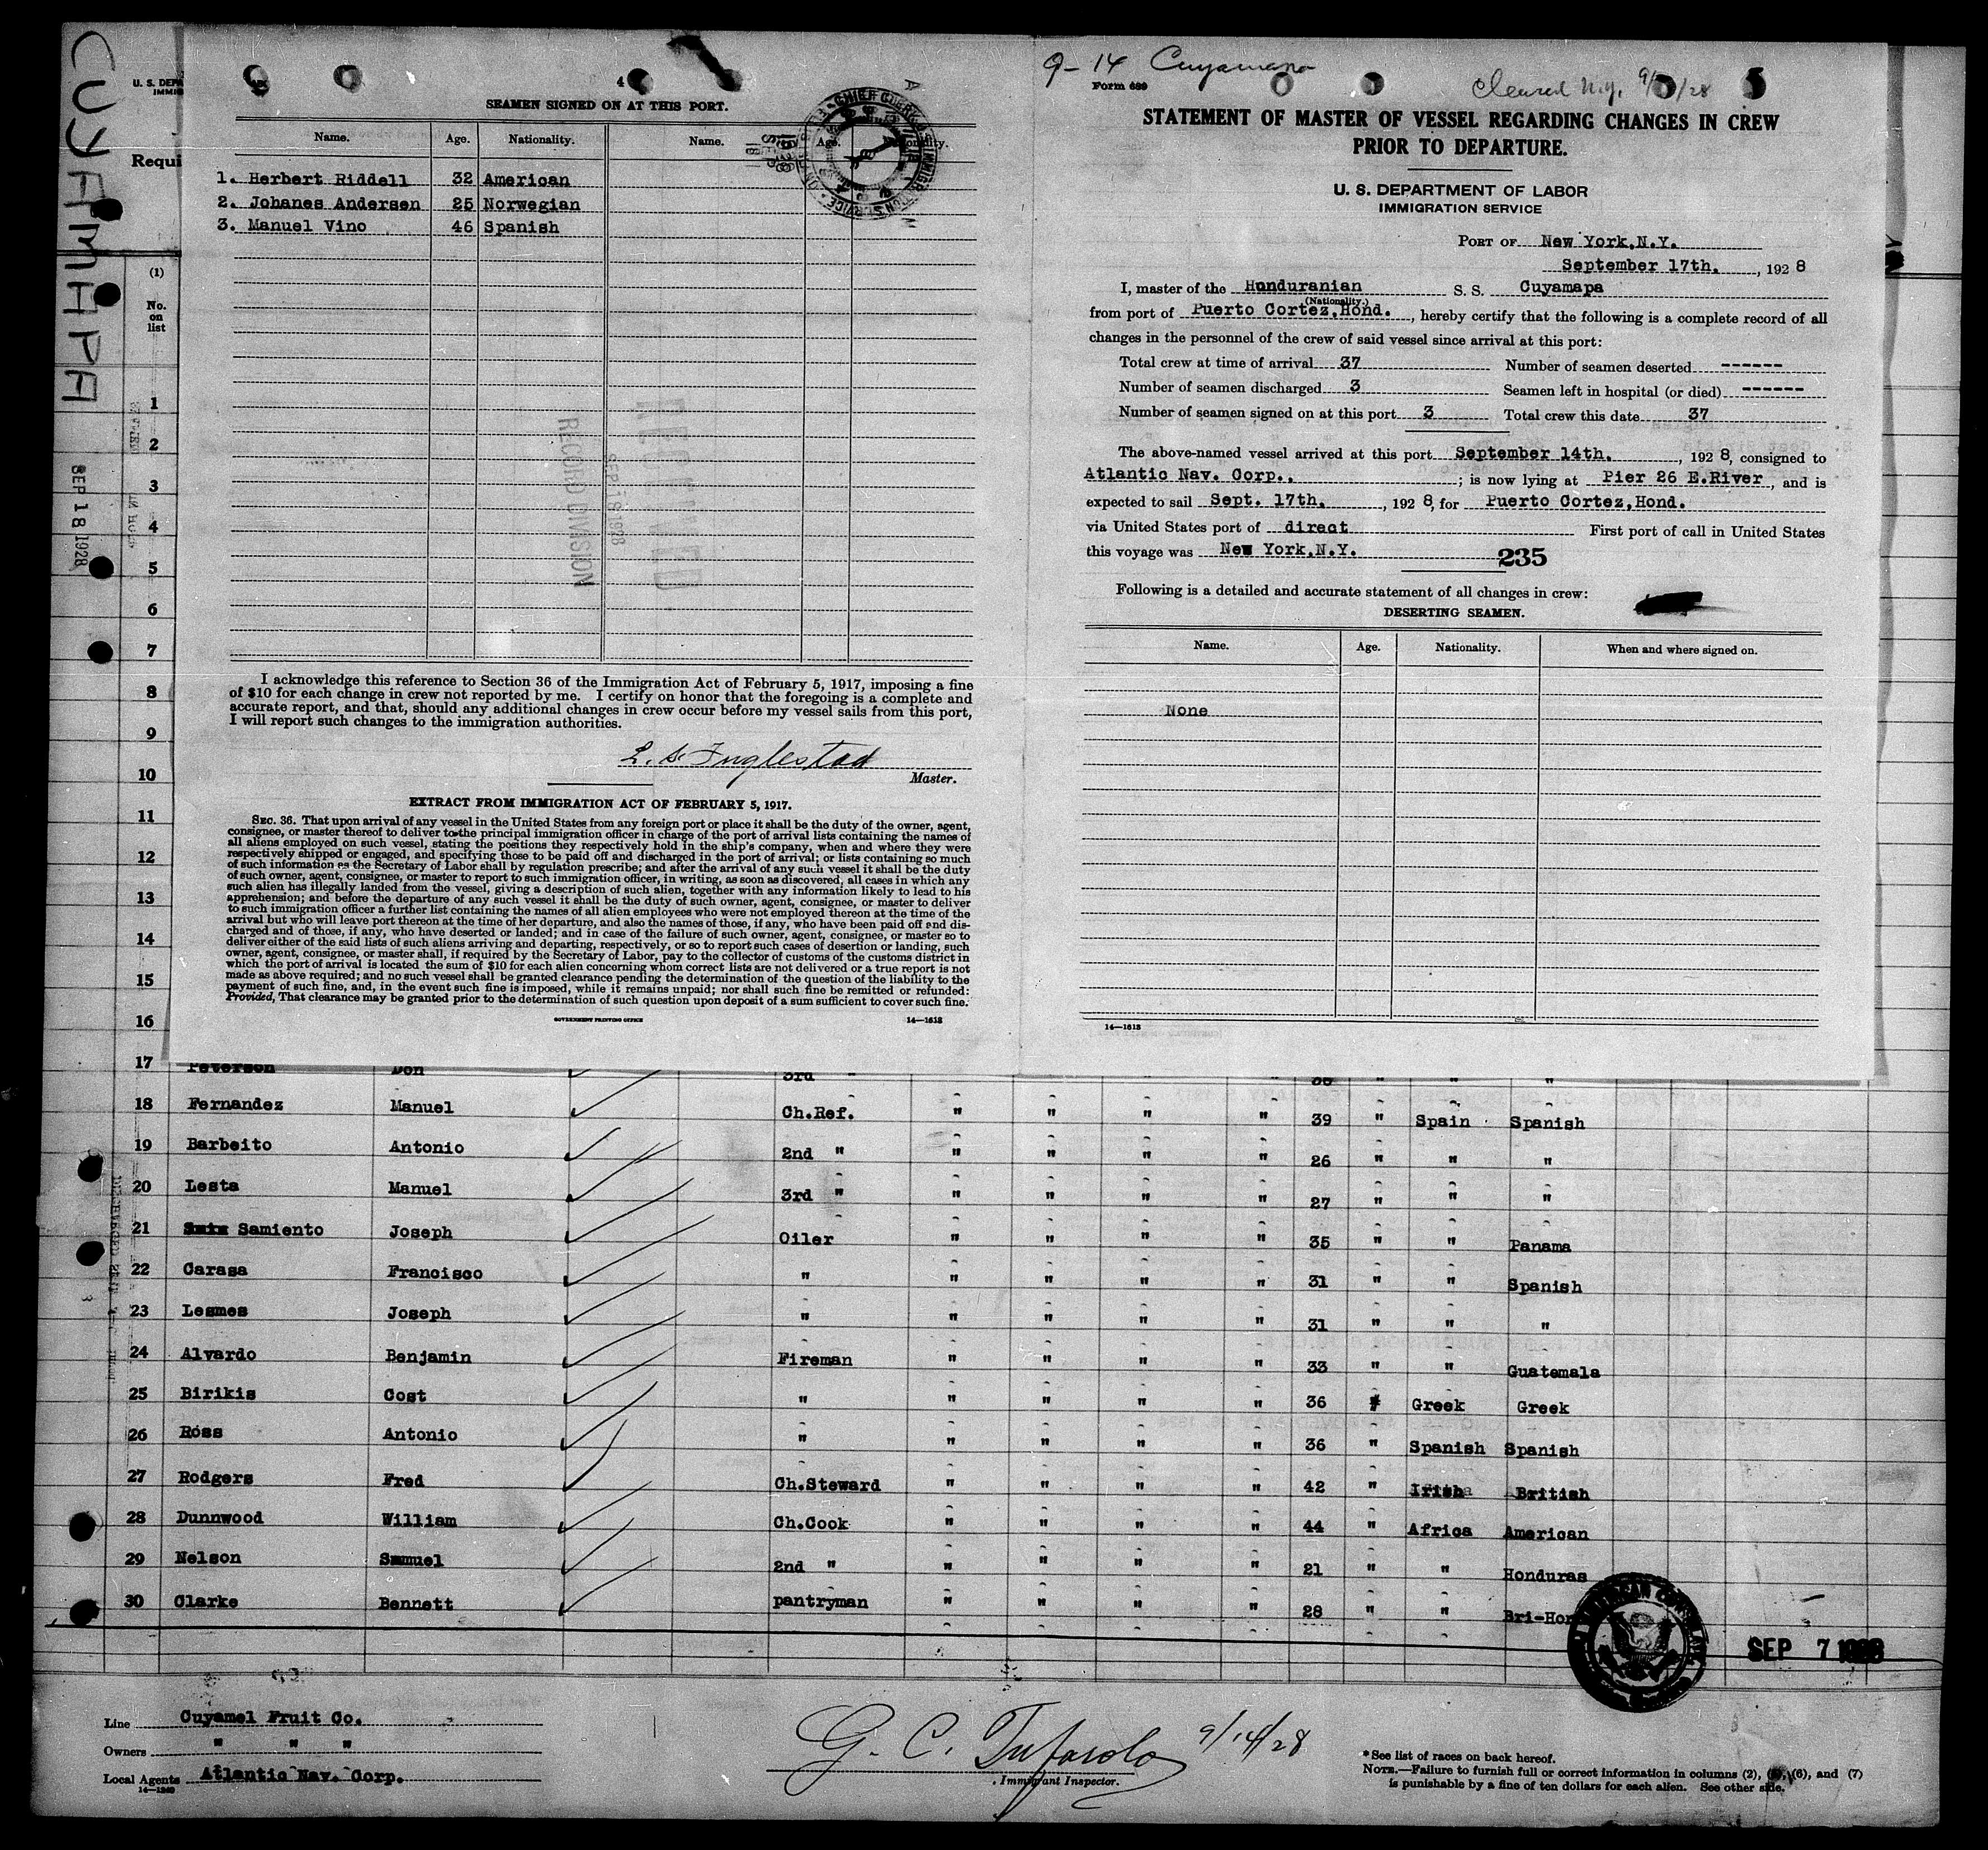 CUYAMAPA
SEP 18 1928
U. S. DEP
IMMIG
Requi
(1)
No.
on
list
1
2
3
4
5
6
7
8
9
10
11
12
13
14
15
16
4
SEAMEN SIGNED ON AT THIS PORT.
Name. Age. Nationality. Name. Age. Nationality.
1. Herbert Riddell 32 American
2. Johanes Andersen 25 Norwegian
3. Manuel Vino 46 Spanish
1928 SEP 18
RECEIVED
SEP 18 1928
RECORD DIVISION
I acknowledge this reference to Section 36 of the Immigration Act of February 5, 1917, imposing a fine
of $10 for each change in crew not reported by me. I certify on honor that the foregoing is a complete and
accurate report, and that, should any additional changes in crew occur before my vessel sails from this port,
I will report such changes to the immigration authorities.
L. S. Inglestad
Master.
EXTRACT FROM IMMIGRATION ACT OF FEBRUARY 5, 1917.
SEC. 36. That upon arrival of any vessel in the United States from any foreign port or place it shall be the duty of the owner, agent,
consignee, or master thereof to deliver to the principal immigration officer in charge of the port of arrival lists containing the names of
all aliens employed on such vessel, stating the positions they respectively hold in the ship's company, when and where they were
respectively shipped or engaged, and specifying those to be paid off and discharged in the port of arrival; or lists containing so much
of such information as the Secretary of Labor shall by regulation prescribe; and after the arrival of any such vessel it shall be the duty
of such owner, agent, consignee, or master to report to such immigration officer, in writing, as soon as discovered, all cases in which any
such alien has illegally landed from the vessel, giving a description of such alien, together with any information likely to lead to his
apprehension; and before the departure of any such vessel it shall be the duty of such owner, agent, consignee, or master to deliver
to such immigration officer a further list containing the names of all alien employees who were not employed thereon at the time of the
arrival but who will leave port thereon at the time of her departure, and also the names of those, if any, who have been paid off and dis-
charged and of those, if any, who have deserted or landed; and in case of the failure of such owner, agent, consignee, or master so to
deliver either of the said lists of such aliens arriving and departing, respectively, or so to report such cases of desertion or landing, such
owner, agent, consignee, or master shall, if required by the Secretary of Labor, pay to the collector of customs of the customs district in
which the port of arrival is located the sum of $10 for each alien concerning whom correct lists are not delivered or a true report is not
made as above required; and no such vessel shall be granted clearance pending the determination of the question of the liability to the
payment of such fine, and, in the event such fine is imposed, while it remains unpaid; nor shall such fine be remitted or refunded:
Provided, That clearance may be granted prior to the determination of such question upon deposit of a sum sufficient to cover such fine.
GOVERNMENT PRINTING OFFICE 14—1613
9-14 Cuyamapa
Form 689
Cleared N.Y. 9/ /28
STATEMENT OF MASTER OF VESSEL REGARDING CHANGES IN CREW
PRIOR TO DEPARTURE.
U. S. DEPARTMENT OF LABOR
IMMIGRATION SERVICE
PORT OF New York,N.Y.
September 17th. , 1928
I, master of the Honduranian S. S. Cuyamapa
(Nationality.)
from port of Puerto Cortez,Hond. , hereby certify that the following is a complete record of all
changes in the personnel of the crew of said vessel since arrival at this port:
Total crew at time of arrival 37 Number of seamen deserted ------
Number of seamen discharged 3 Seamen left in hospital (or died) ------
Number of seamen signed on at this port 3 Total crew this date 37
The above-named vessel arrived at this port September 14th. , 1928, consigned to
Atlantic Nav. Corp., ; is now lying at Pier 26 E.River , and is
expected to sail Sept. 17th. , 1928, for Puerto Cortez,Hond.
via United States port of direct First port of call in United States
this voyage was New York,N.Y.
235
Following is a detailed and accurate statement of all changes in crew:
DESERTING SEAMEN.
Name. Age. Nationality. When and where signed on.
None
14—1613
17 Peterson Don 3rd " " " " " " "
18 Fernandez Manuel Ch.Ref. " " " " 39 " Spain Spanish
19 Barbeito Antonio 2nd " " " " " 26 " " "
20 Lesta Manuel 3rd " " " " " 27 " " "
21 Samiento Joseph Oiler " " " " 35 " " Panama
22 Carasa Francisco " " " " " 31 " " Spanish
23 Lesmes Joseph " " " " " 31 " " "
24 Alvardo Benjamin Fireman " " " " 33 " " Guatemala
25 Birikis Cost " " " " " 36 " Greek Greek
26 Ross Antonio " " " " " 36 " Spanish Spanish
27 Rodgers Fred Ch.Steward " " " " 42 " Irish British
28 Dunnwood William Ch.Cook " " " " 44 " Africa American
29 Nelson Samuel 2nd " " " " " 21 " " Honduras
30 Clarke Bennett pantryman " " " " 28 " " Bri-Hon
SEP 7 1928
Line Cuyamel Fruit Co.
Owners " " "
Local Agents Atlantic Nav. Corp.
14—1240
G. C. Tufarolo 9/14/28
Immigrant Inspector.
* See list of races on back hereof.
NOTE.—Failure to furnish full or correct information in columns (2), (6), and (7)
is punishable by a fine of ten dollars for each alien. See other side.